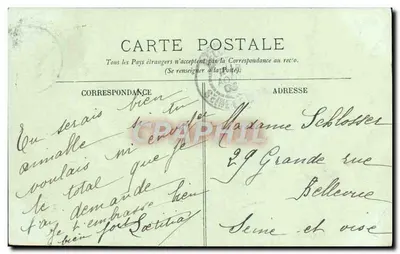 CARTE POSTALE
Tous les Pays étrangers n'acceptent pas la Correspondance au recto.
(Se renseigner à la Poste).
CORRESPONDANCE
ADRESSE
Tu serais bien
aimable si tu
voulais m'envoyer
le total que je
t'ai demandé
Je t'embrasse bien
bien fort Laetitia
CARTAPHILIA
Madame Schlosser
29 Grande rue
Bellevue
Seine et oise